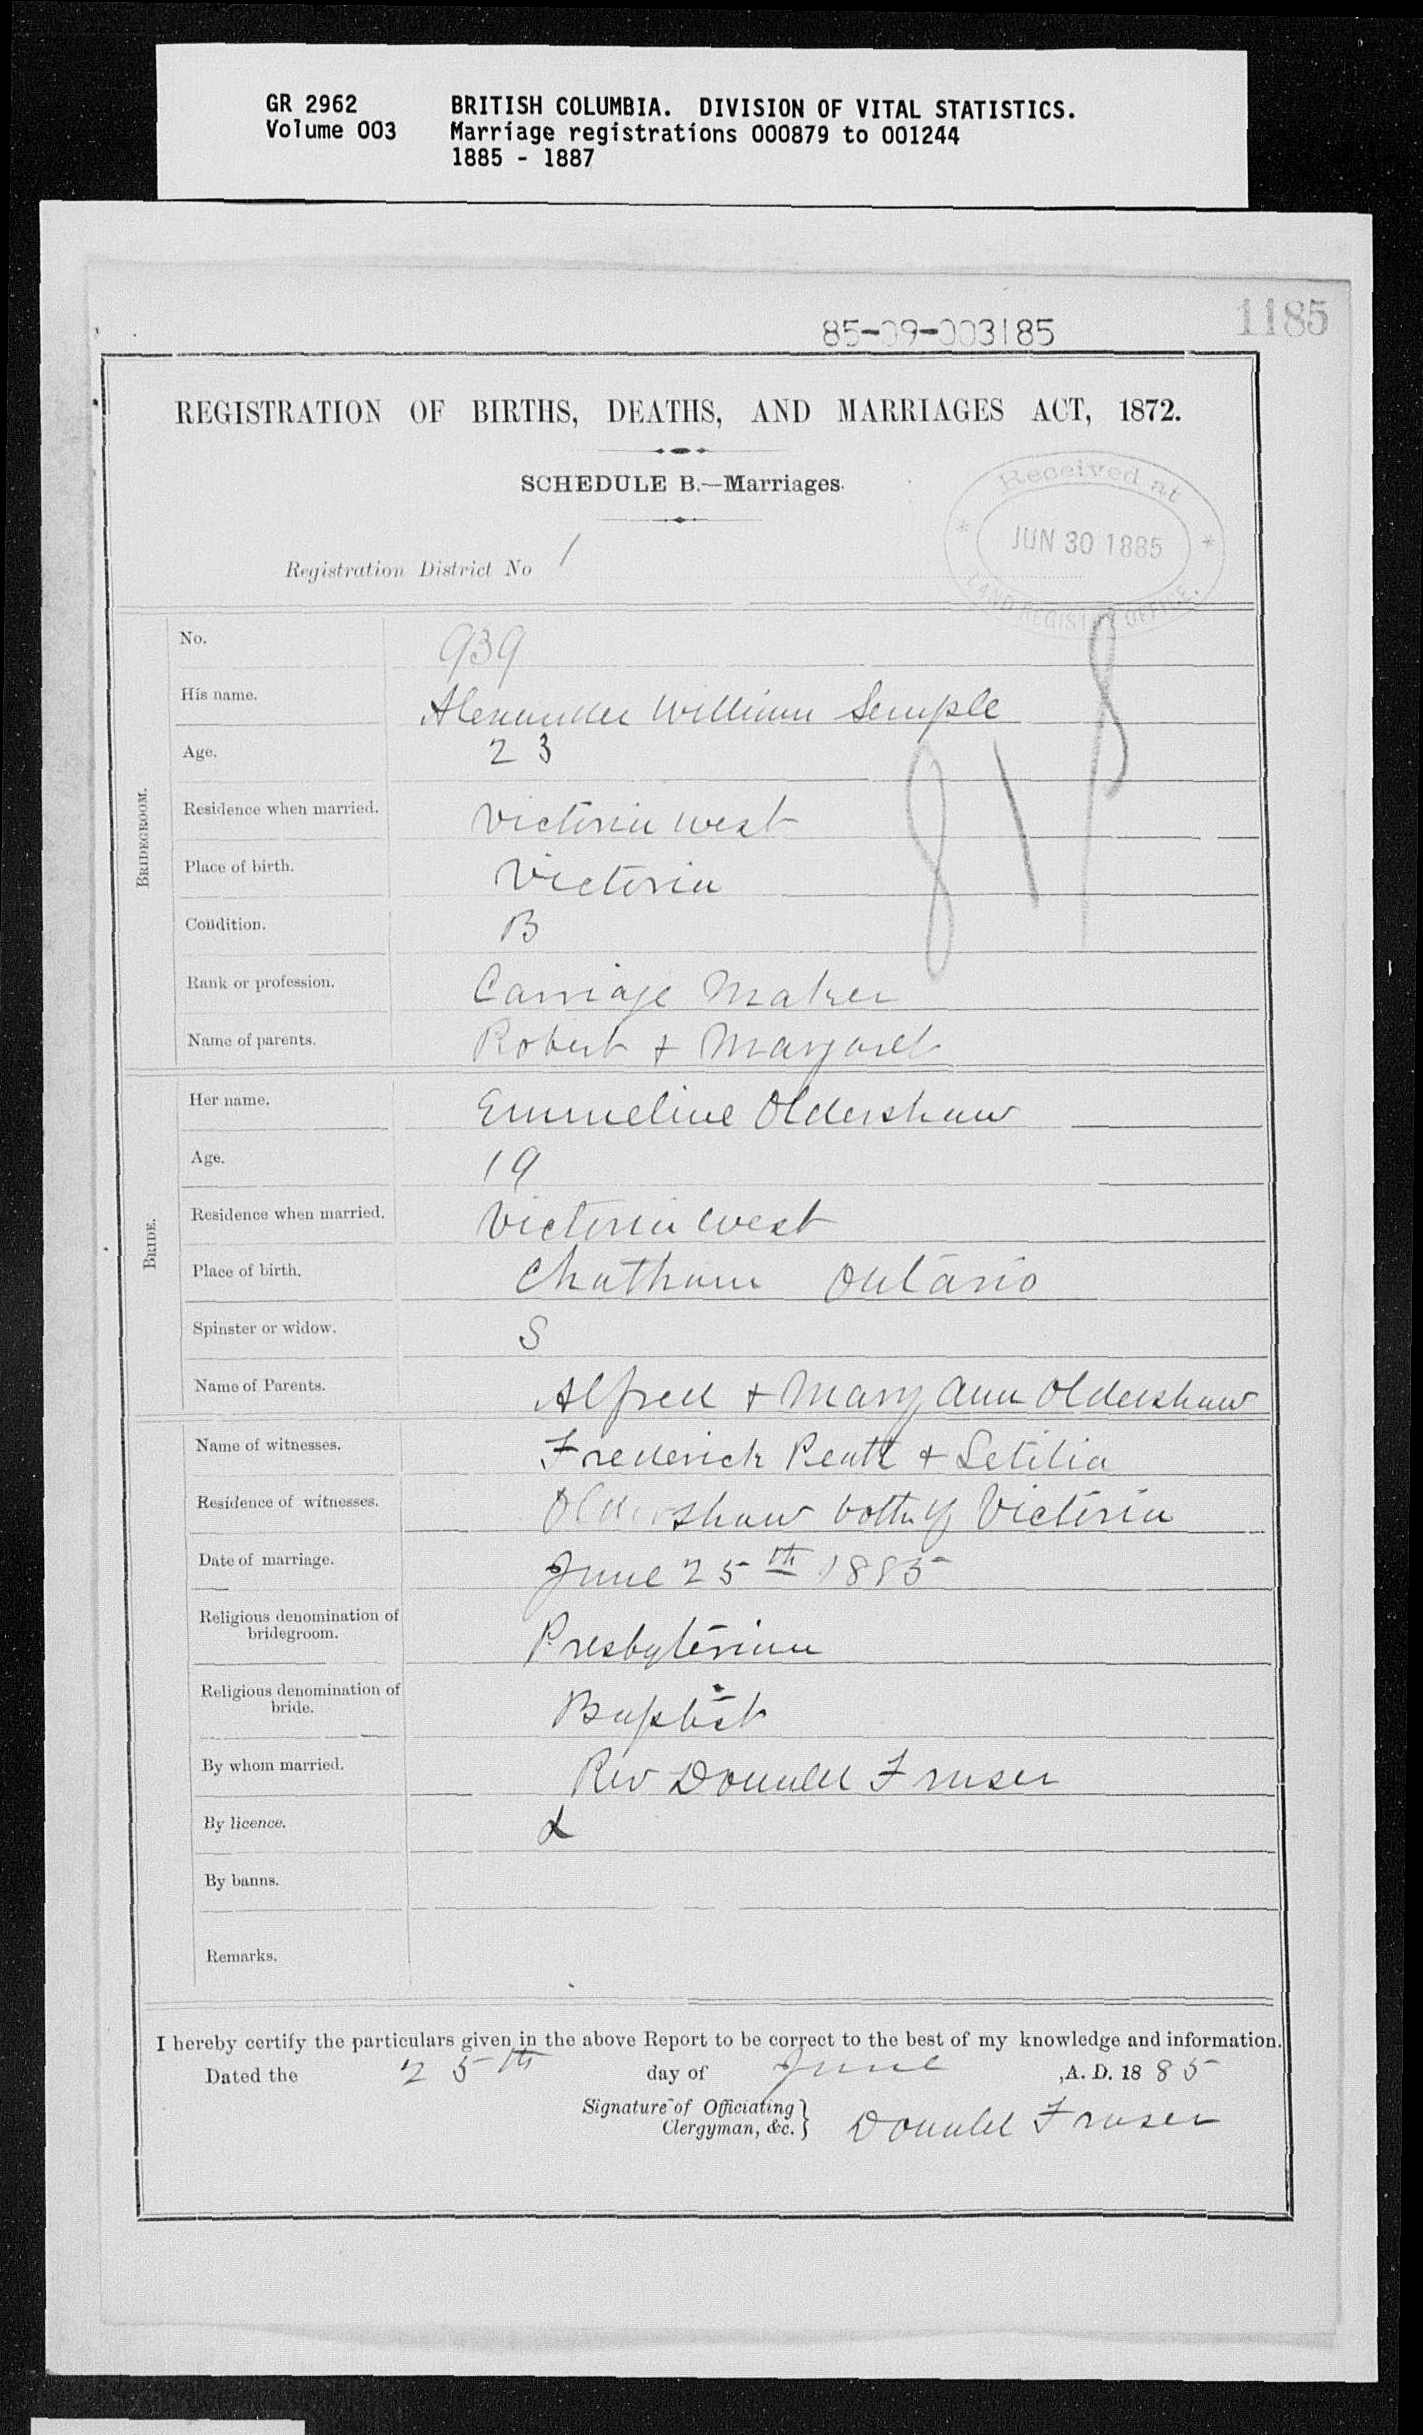 GR 2962 BRITISH COLUMBIA. DIVISION OF VITAL STATISTICS.
Volume 003 Marriage registrations 000879 to 001244
1885 - 1887
1185
85-09-003185
REGISTRATION OF BIRTHS, DEATHS, AND MARRIAGES ACT, 1872.
SCHEDULE B.—Marriages.
Received at
JUN 30 1885
LAND REGISTRY OFFICE.
Registration District No 1
BRIDEGROOM.
No. 939
His name. Alexander William Semple
Age. 23
Residence when married. Victoria West
Place of birth. Victoria
Condition. B
Rank or profession. Carriage Maker
Name of parents. Robert + Margaret
BRIDE.
Her name. Emmeline Oldershaw
Age. 19
Residence when married. Victoria West
Place of birth. Chatham Ontario
Spinster or widow. S
Name of Parents. Alfred + Mary Ann Oldershaw
Name of witnesses. Frederick + Letitia
Residence of witnesses. Oldershaw both of Victoria
Date of marriage. June 25th 1885
Religious denomination of
bridegroom. Presbyterian
Religious denomination of
bride. Baptist
By whom married. Rev Donald Fraser
By licence.
By banns.
Remarks.
I hereby certify the particulars given in the above Report to be correct to the best of my knowledge and information.
Dated the 25th day of June ,A. D. 1885
Signature of Officiating
Clergyman, &c. } Donald Fraser